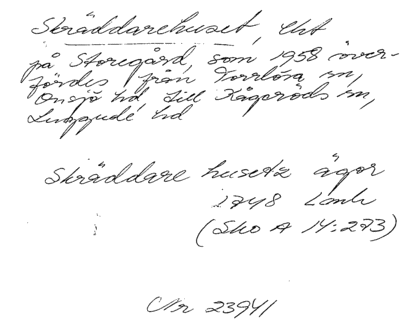 Skräddarehuset, lht
på Storegård, som 1958 över-
fördes från Torrlösa sn,
Onsjö hd, till Kågeröds sn,
Luggude hd
Skräddare husetz ägor
1748 Lantm
(Sko A 14:273)
Nr 23941